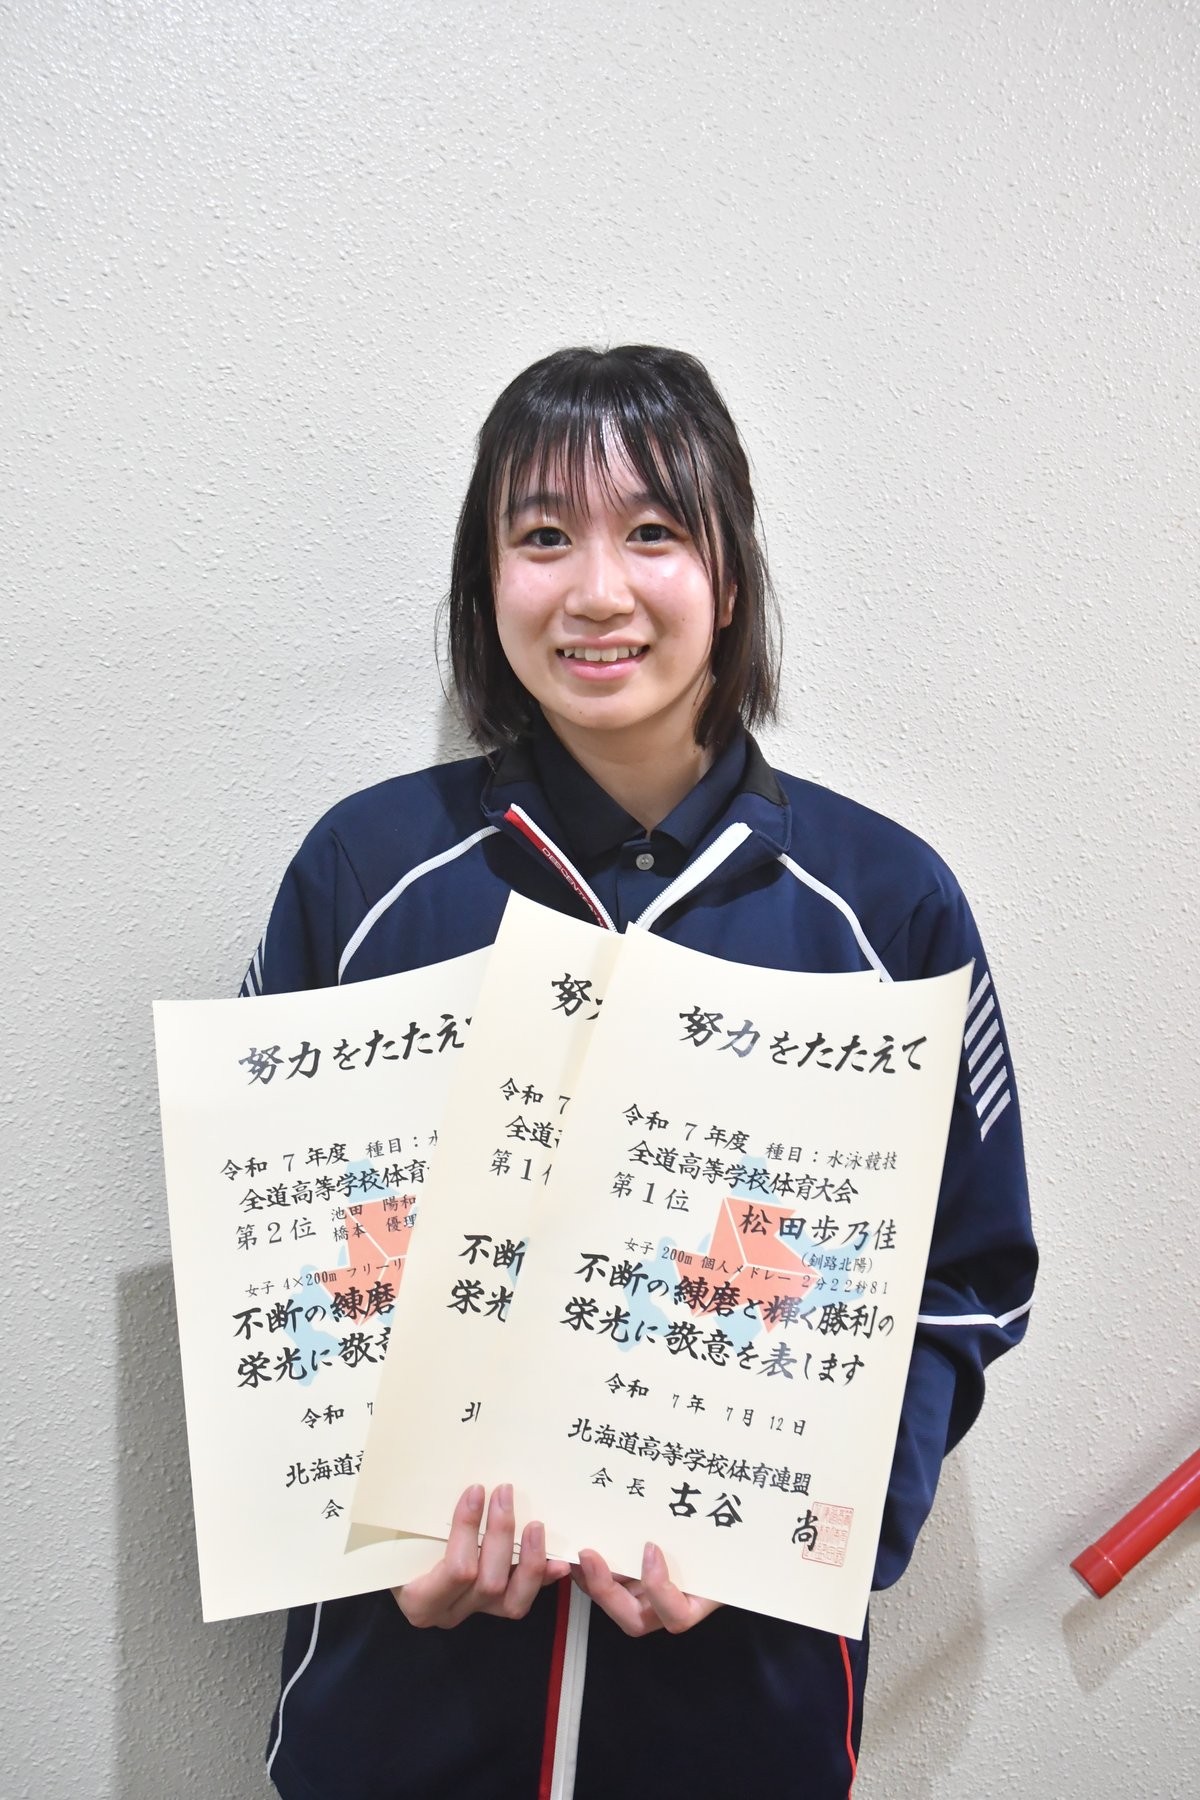 努力をたたえ
令和 7 年度 種目：水
全道高等学校体育
第２位 池田 陽和
橋本 優理
女子 4×200m フリーリ
不断の練磨
栄光に敬意
令和 7
北海道高
会
努
令和 7
全道
第１位
不断
栄光
北
努力をたたえて
令和 7 年度 種目：水泳競技
全道高等学校体育大会
第１位 松田歩乃佳
(釧路北陽)
女子 200m 個人メドレー ２分２２秒８１
不断の練磨と輝く勝利の
栄光に敬意を表します
令和 7年 7月 12日
北海道高等学校体育連盟
会長 古谷 尚